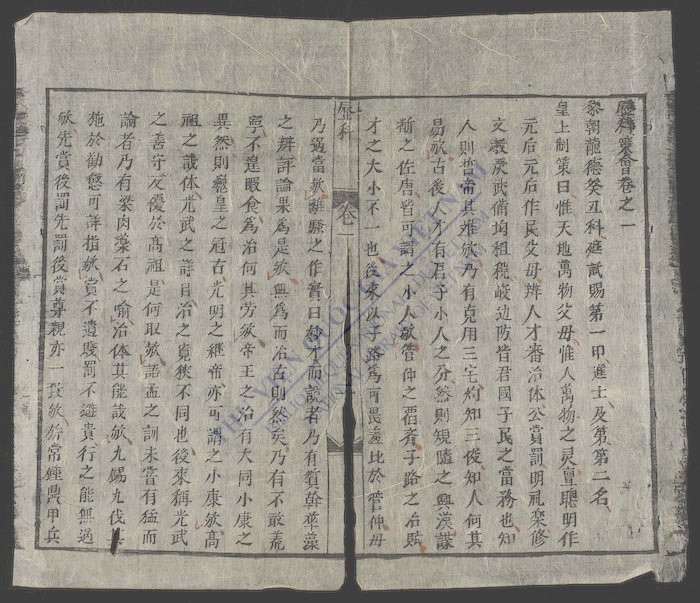 歷科會卷之一
黎朝龍德癸丑科庭試賜第一甲進士及第第二名
皇上制策曰惟天地萬物父母惟人萬物之灵亶聰明作
元后元后作民父母辨人才審治体公賞罰明礼楽修
文教庑武俻均祖税峻边防皆君國子民之當務也知
人則哲帝其难欤乃有克用三宅灼知三俊知人何其
易欤古後人才有君子小人之分然則規隨之興漢謀
斷之佐唐皆可謂之小人欤管仲之覇斉子路之治賦
才之大小不一也後来以子路為可畏羞比於管仲毋
歷科
卷一
乃過當欤離騷之作實曰妙才而說者乃有質幹華藻
之辨評論果為是欤無為而治古則然矣乃有不敢荒
寧不遑暇食為治何其劳欤帝王之治有大同小康之
異然則羲皇之冠古光明之継帝亦可謂之小康欤高
祖之哉体光武之詳目治之寬狹不同也後来稱光武
之善守反優於髙祖是何取欤語孟之訓未甞有猛而
論者乃有粱肉藥石之喻治体其能哉欤九錫九伐其
施於勧懲可詳指欤賞不遺賤罰不避貴行之能無過
欤先賞後罰先罰後賞尊親亦一致欤旂常鍾鼎甲兵
THƯ VIỆN QUỐC GIA VIỆT NAM
NATIONAL LIBRARY OF VIETNAM